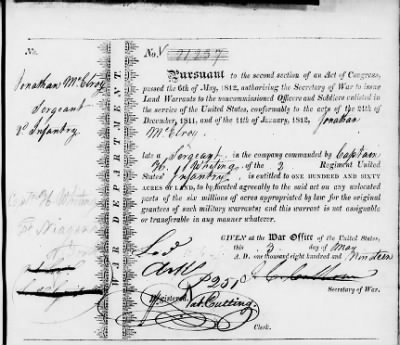 No.
No. 21257
Jonathan McElroy
Sergeant
2d Infantry.
WAR DEPARTMENT.
Pursuant to the second section of an Act of Congress,
passed the 6th of May, 1812, authorizing the Secretary of War to issue
Land Warrants to the noncommissioned Officers and Soldiers enlisted in
the service of the United States, conformably to the acts of the 24th of
December, 1811, and of the 11th of January, 1812, Jonathan
McElroy
late a Sergeant in the company commanded by Captain
Whiting of the 2 Regiment United
States Infantry is entitled to ONE HUNDRED AND SIXTY
ACRES OF LAND, to be located agreeably to the said act on any unlocated
parts of the six millions of acres appropriated by law for the original
grantees of such military warrants; and this warrant is not assignable
or transferable in any manner whatever.
GIVEN at the WAR OFFICE of the United States,
this 3 day of May
A. D. one thousand eight hundred and Nineteen
Secretary of War.
Registered
Nat. Cutting.
Clerk.